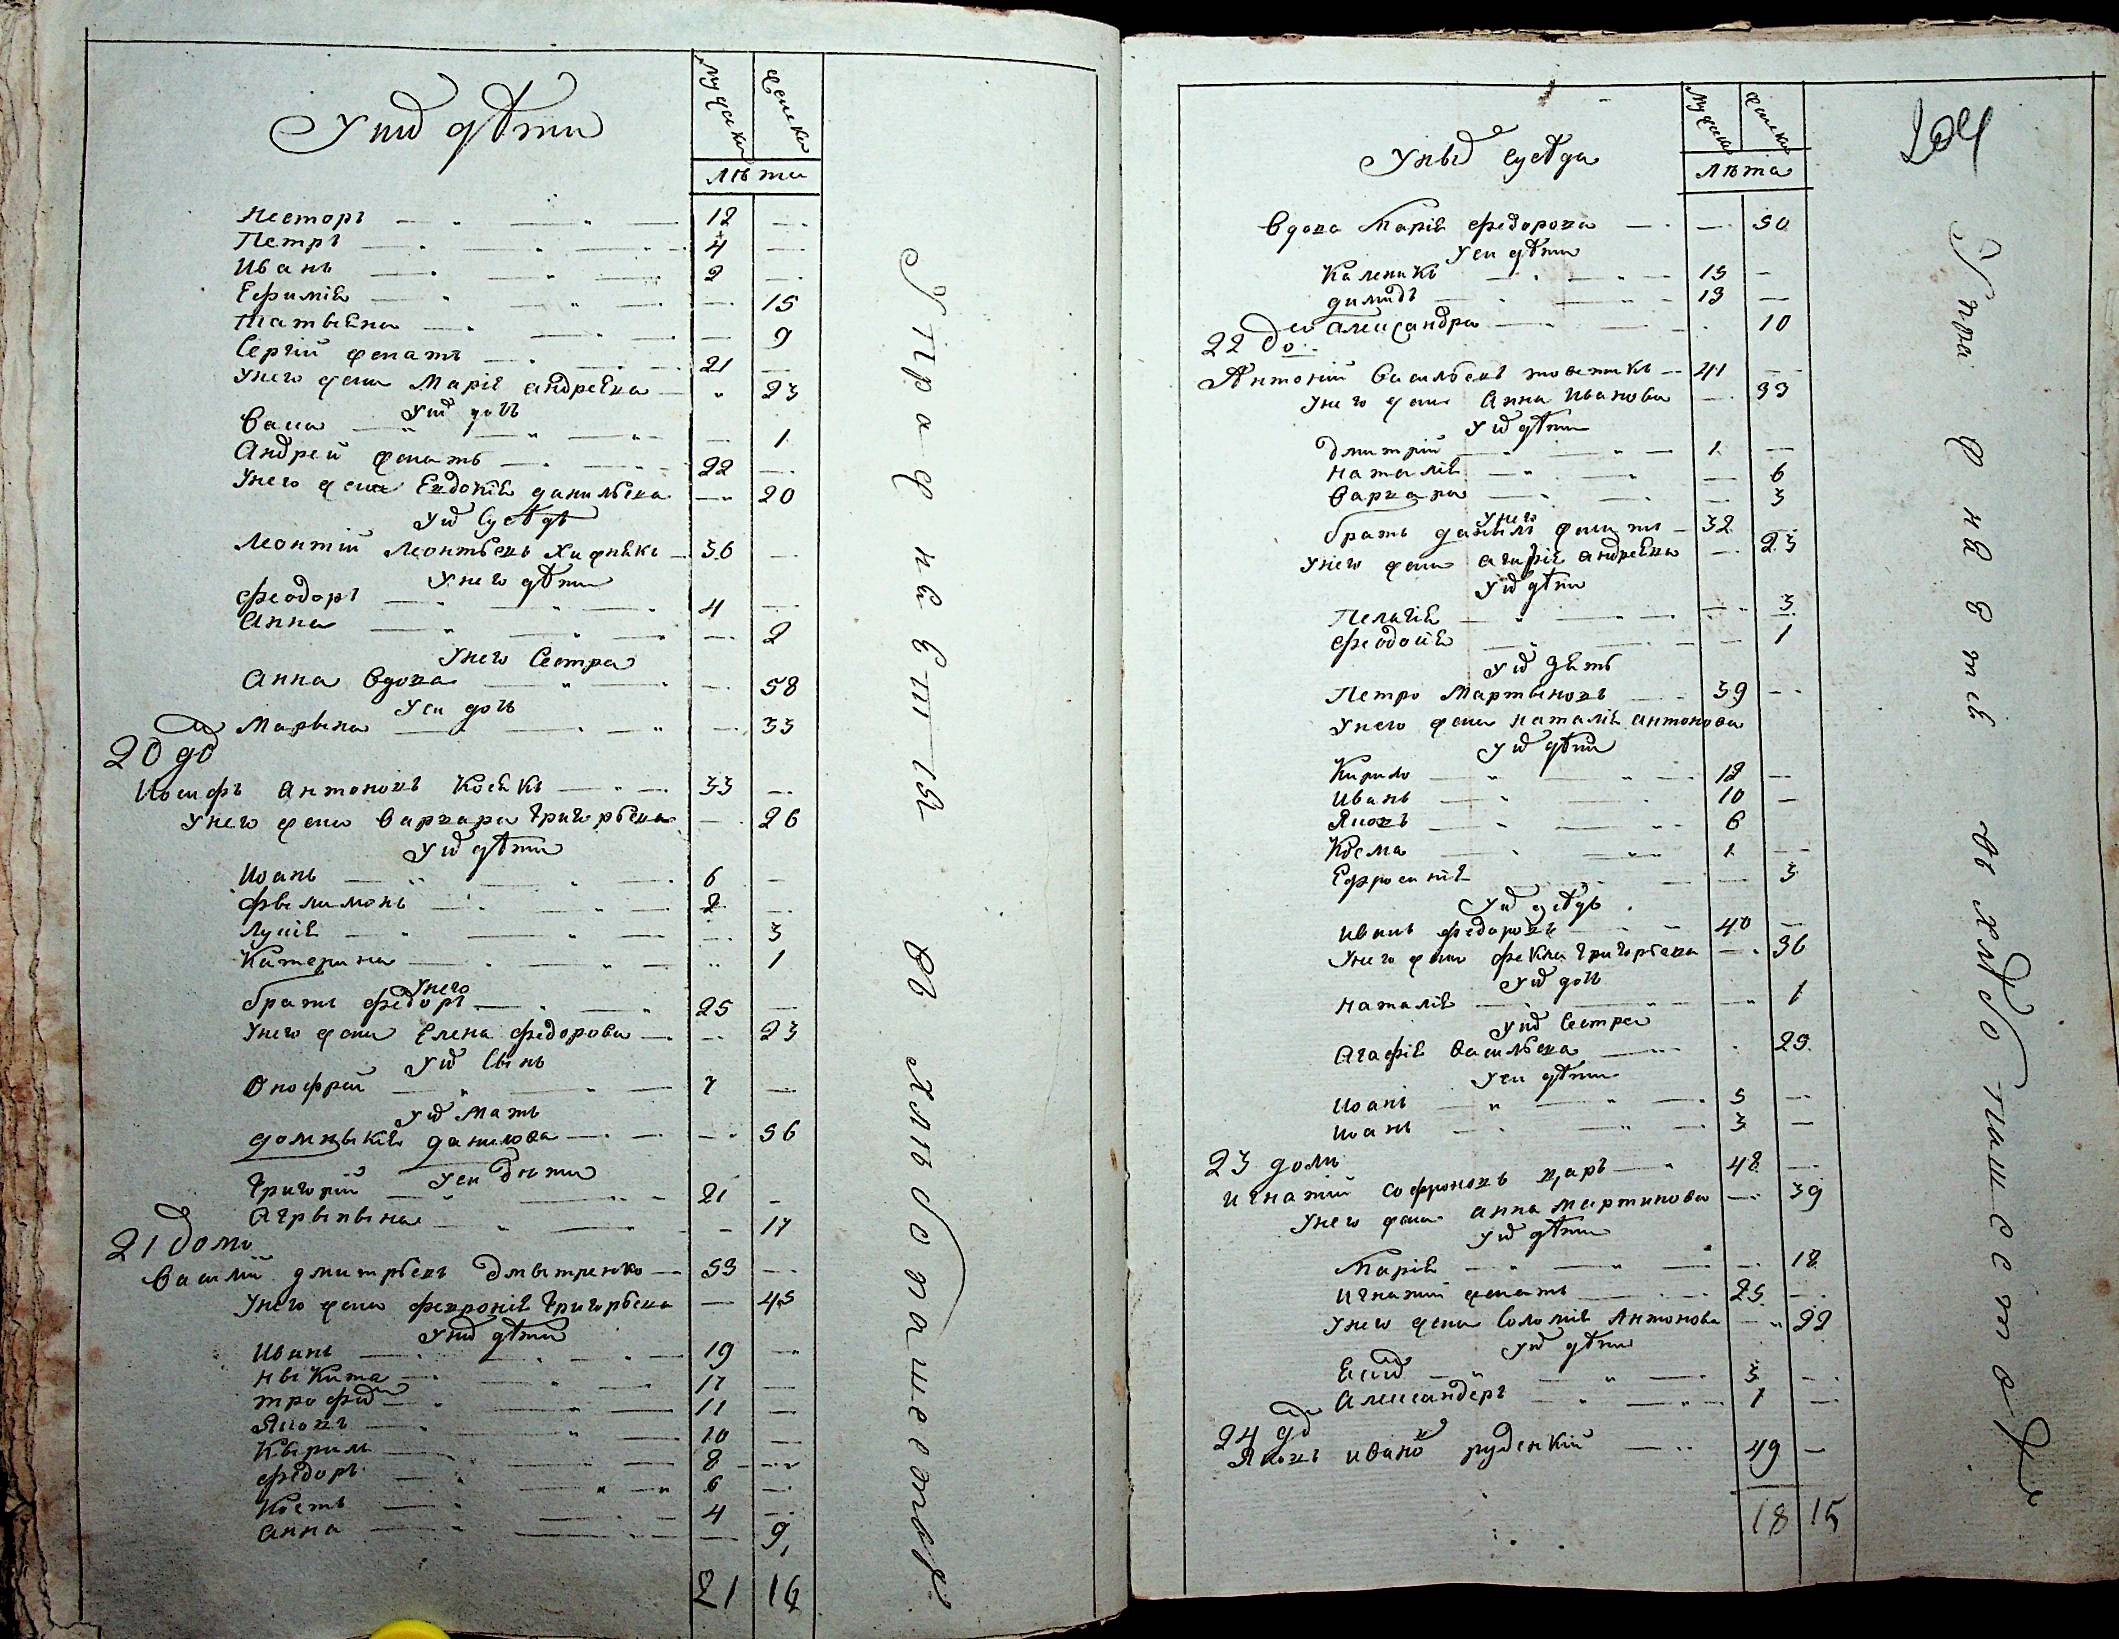 У них дѣти
мужска
женска
лѣта
Несторъ 12
Петръ 4
Иванъ 2
Ефимія 15
Татьяна 9
Сергій женатъ 21
У него жена Марія Андреева 23
У них дочь
Васса 1
Андрей женатъ 22
У него жена Евдокія Данильева 20
У их сусѣдъ
Леонтій Леонтьевъ 36
У него дѣти
Феодоръ 4
Анна 2
У него сестра
Анна вдова 58
У еи дочь
Марына 33
20 до
Иосифъ Антоновъ 33
У него жена Варвара Григорьева 26
У их дѣти
Иоанъ 6
Филимонъ 2
Лукія 3
Катерина 1
У него
братъ Федоръ 25
У него жена Елена Федорова 23
У их сынъ
Онофрій 7
У их мать
Домныкія Данилова 56
У еи дѣти
Григорій 21
Агрыпына 17
21 домъ
Василій Дмитрьевъ Дмытренко 53
У него жена Февронія Григорьева 45
У них дѣти
Иванъ 19
Ныкита 17
Трофим 11
Яковъ 10
Кырилъ 8
Федоръ 6
Костъ 4
Анна 9
21 16
Упражняется въ хлѣбопашествѣ
204
У ных сусѣда
мужска
женска
лѣта
Вдова Марія Федорова 50
У еи дѣти
Каленикъ 15
Димидъ 13
Александра 10
22 до
Антоній Васильевъ 41
У него жена Анна Иванова 33
У их дѣти
Дмитрій 1
Наталія 6
Варвара 3
У него
братъ Даніилъ женатъ 32
У него жена Агафія Андреева 23
У их дѣти
Пелагія 3
Феодосія 1
У их зять
Петро Мартыновъ 39
У него жена Наталія Антонова
У их дѣти
Кирило 12
Иванъ 10
Яковъ 6
Косма 1
Ефросинія 3
У их сусѣдъ
Иванъ Федоровъ 40
У него жена Фекла Григорьева 36
У их дочь
Наталія 1
У них сестра
Агафія Васильева 29
У еи дѣти
Иоанъ 5
Иоанъ 3
23 домъ
Игнатій Софроновъ 48
У него жена Анна Мартинова 39
У их дѣти
Марія 18
Игнатій женатъ 25
У него жена Соломія Антонова 22
У их дѣти
Александеръ 1
24 до
Яковъ Иванов Руденкій 49
18 15
Упражняется въ хлѣбопашествѣ